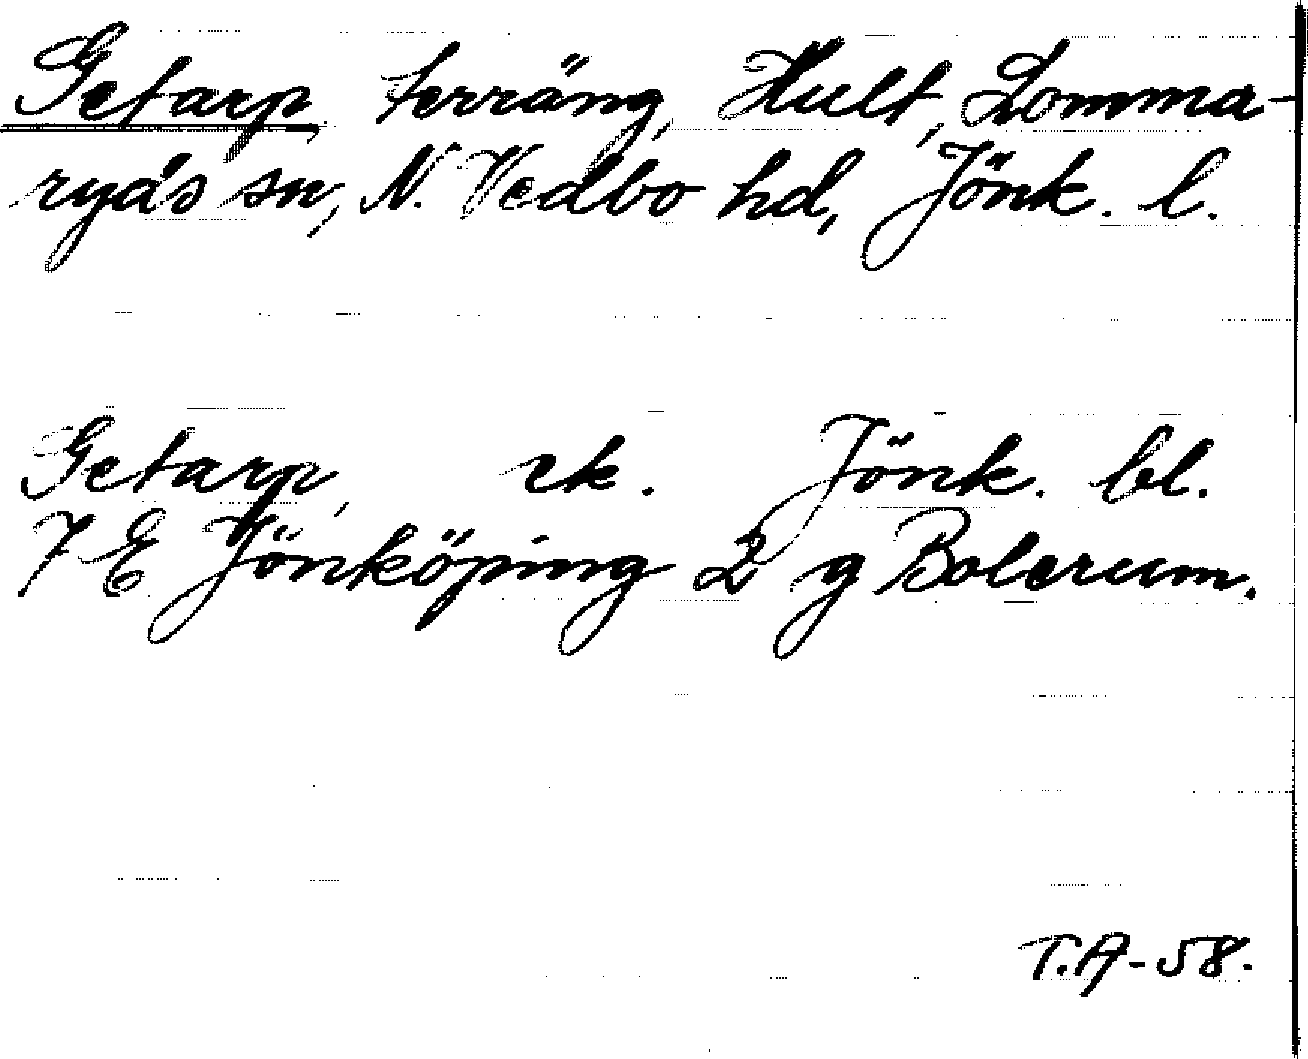 Getarp, terräng, Hult, Lomma-
ryds sn, N. Vedbo hd, Jönk. l.
Getarp, ek. Jönk. bl.
7 E Jönköping 2 g Bolerum.
T.A-58.